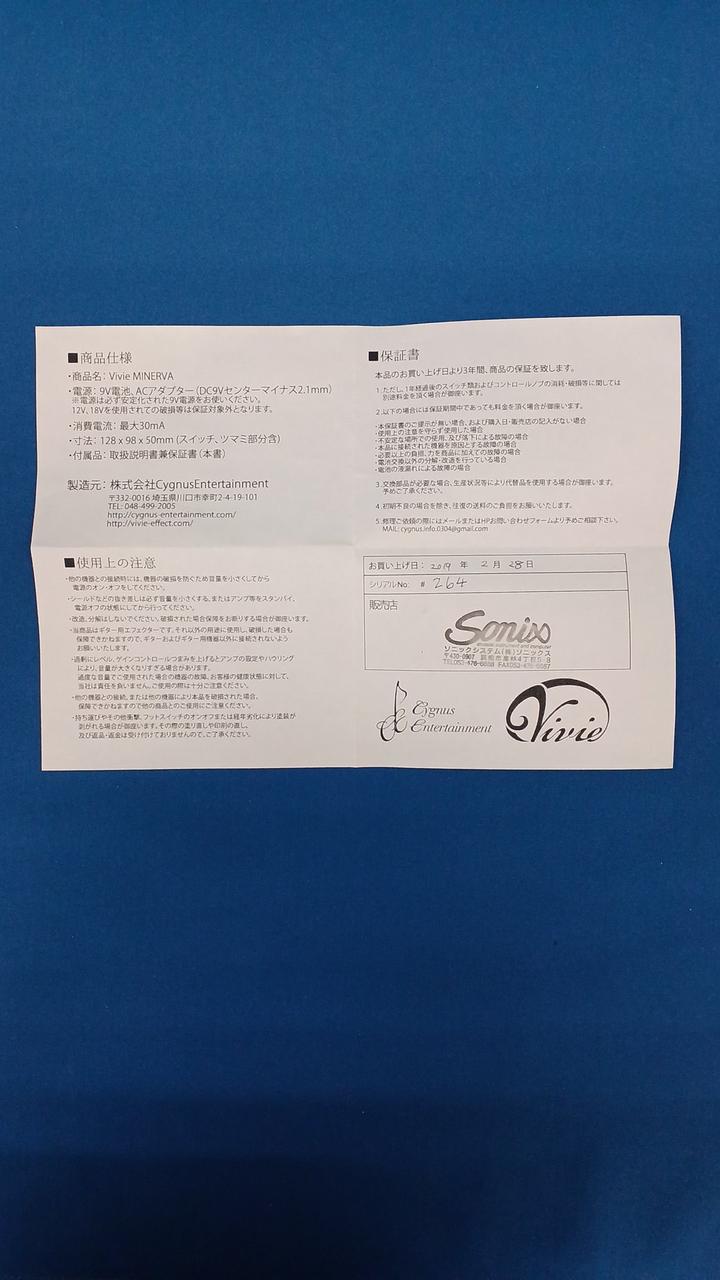 ■商品仕様
・商品名：Vivie MINERVA
・電源：9V電池、ACアダプター（DC9Vセンターマイナス2.1mm）
※電源は必ず安定化された9V電源をお使いください。
12V、18Vを使用されての破損等は保証対象外となります。
・消費電流：最大30mA
・寸法：128 x 98 x 50mm（スイッチ、ツマミ部分含）
・付属品：取扱説明書兼保証書（本書）
製造元：株式会社CygnusEntertainment
〒332-0016 埼玉県川口市幸町2-4-19-101
TEL: 048-499-2005
http://cygnus-entertainment.com/
http://vivie-effect.com/
■使用上の注意
・他の機器との接続時には、機器の破損を防ぐため音量を小さくしてから
電源のオン・オフをしてください。
・シールドなどの抜き差しは必ず音量を小さくする、またはアンプ等をスタンバイ、
電源オフの状態にしてから行ってください。
・改造、分解はしないでください。破損された場合保障をお断りする場合が御座います。
・当商品はギター用エフェクターです。それ以外の用途に使用し、破損した場合も
保障できかねますので、ギターおよびギター用機器以外に接続されないよう
お願いいたします。
・過剰にレベル、ゲインコントロールつまみを上げるとアンプの設定やハウリング
により、音量が大きくなりすぎる場合があります。
過度な音量でご使用された場合の機器の故障、お客様の健康状態に対して、
当社は責任を負いません。ご使用の際は十分ご注意ください。
・他の機器との接続、または他の機器により本品を破損された場合、
保障できかねますので他の商品とのご使用にご注意ください。
・持ち運びやその他衝撃、フットスイッチのオンオフまたは経年劣化により塗装が
剥がれる場合が御座います。その際の塗り直しや印刷の直し、
及び返品・返金は受け付けておりませんので、ご了承ください。
■保証書
本品のお買い上げ日より3年間、商品の保証を致します。
1.ただし、1年経過後のスイッチ類およびコントロールノブの消耗・破損等に関しては
別途料金を頂く場合が御座います。
2.以下の場合には保証期間中であっても料金を頂く場合が御座います。
・本保証書のご提示が無い場合、および購入日・販売店の記入がない場合
・使用上の注意を守らず使用した場合
・不安定な場所での使用、及び落下による故障の場合
・本品に接続された機器を原因とする故障の場合
・必要以上の負担、力を商品に加えての故障の場合
・電池交換以外の分解・改造を行っている場合
・電池の液漏れによる故障の場合
3.交換部品が必要な場合、生産状況等により代替品を使用する場合が御座います。
予めご了承ください。
4.初期不良の場合を除き、往復の送料のご負担をお願いいたします。
5.修理ご依頼の際にはメールまたはHPお問い合わせフォームより予めご相談下さい。
MAIL: cygnus.info.0304@gmail.com
お買い上げ日：2019 年 2 月 28 日
シリアルNo: # 264
販売店
Sonix
ソニックシステム(株)ソニックス
〒430-0907 浜松市
TEL053-476-6688 FAX053-476-6687
Cygnus
Entertainment
Vivie